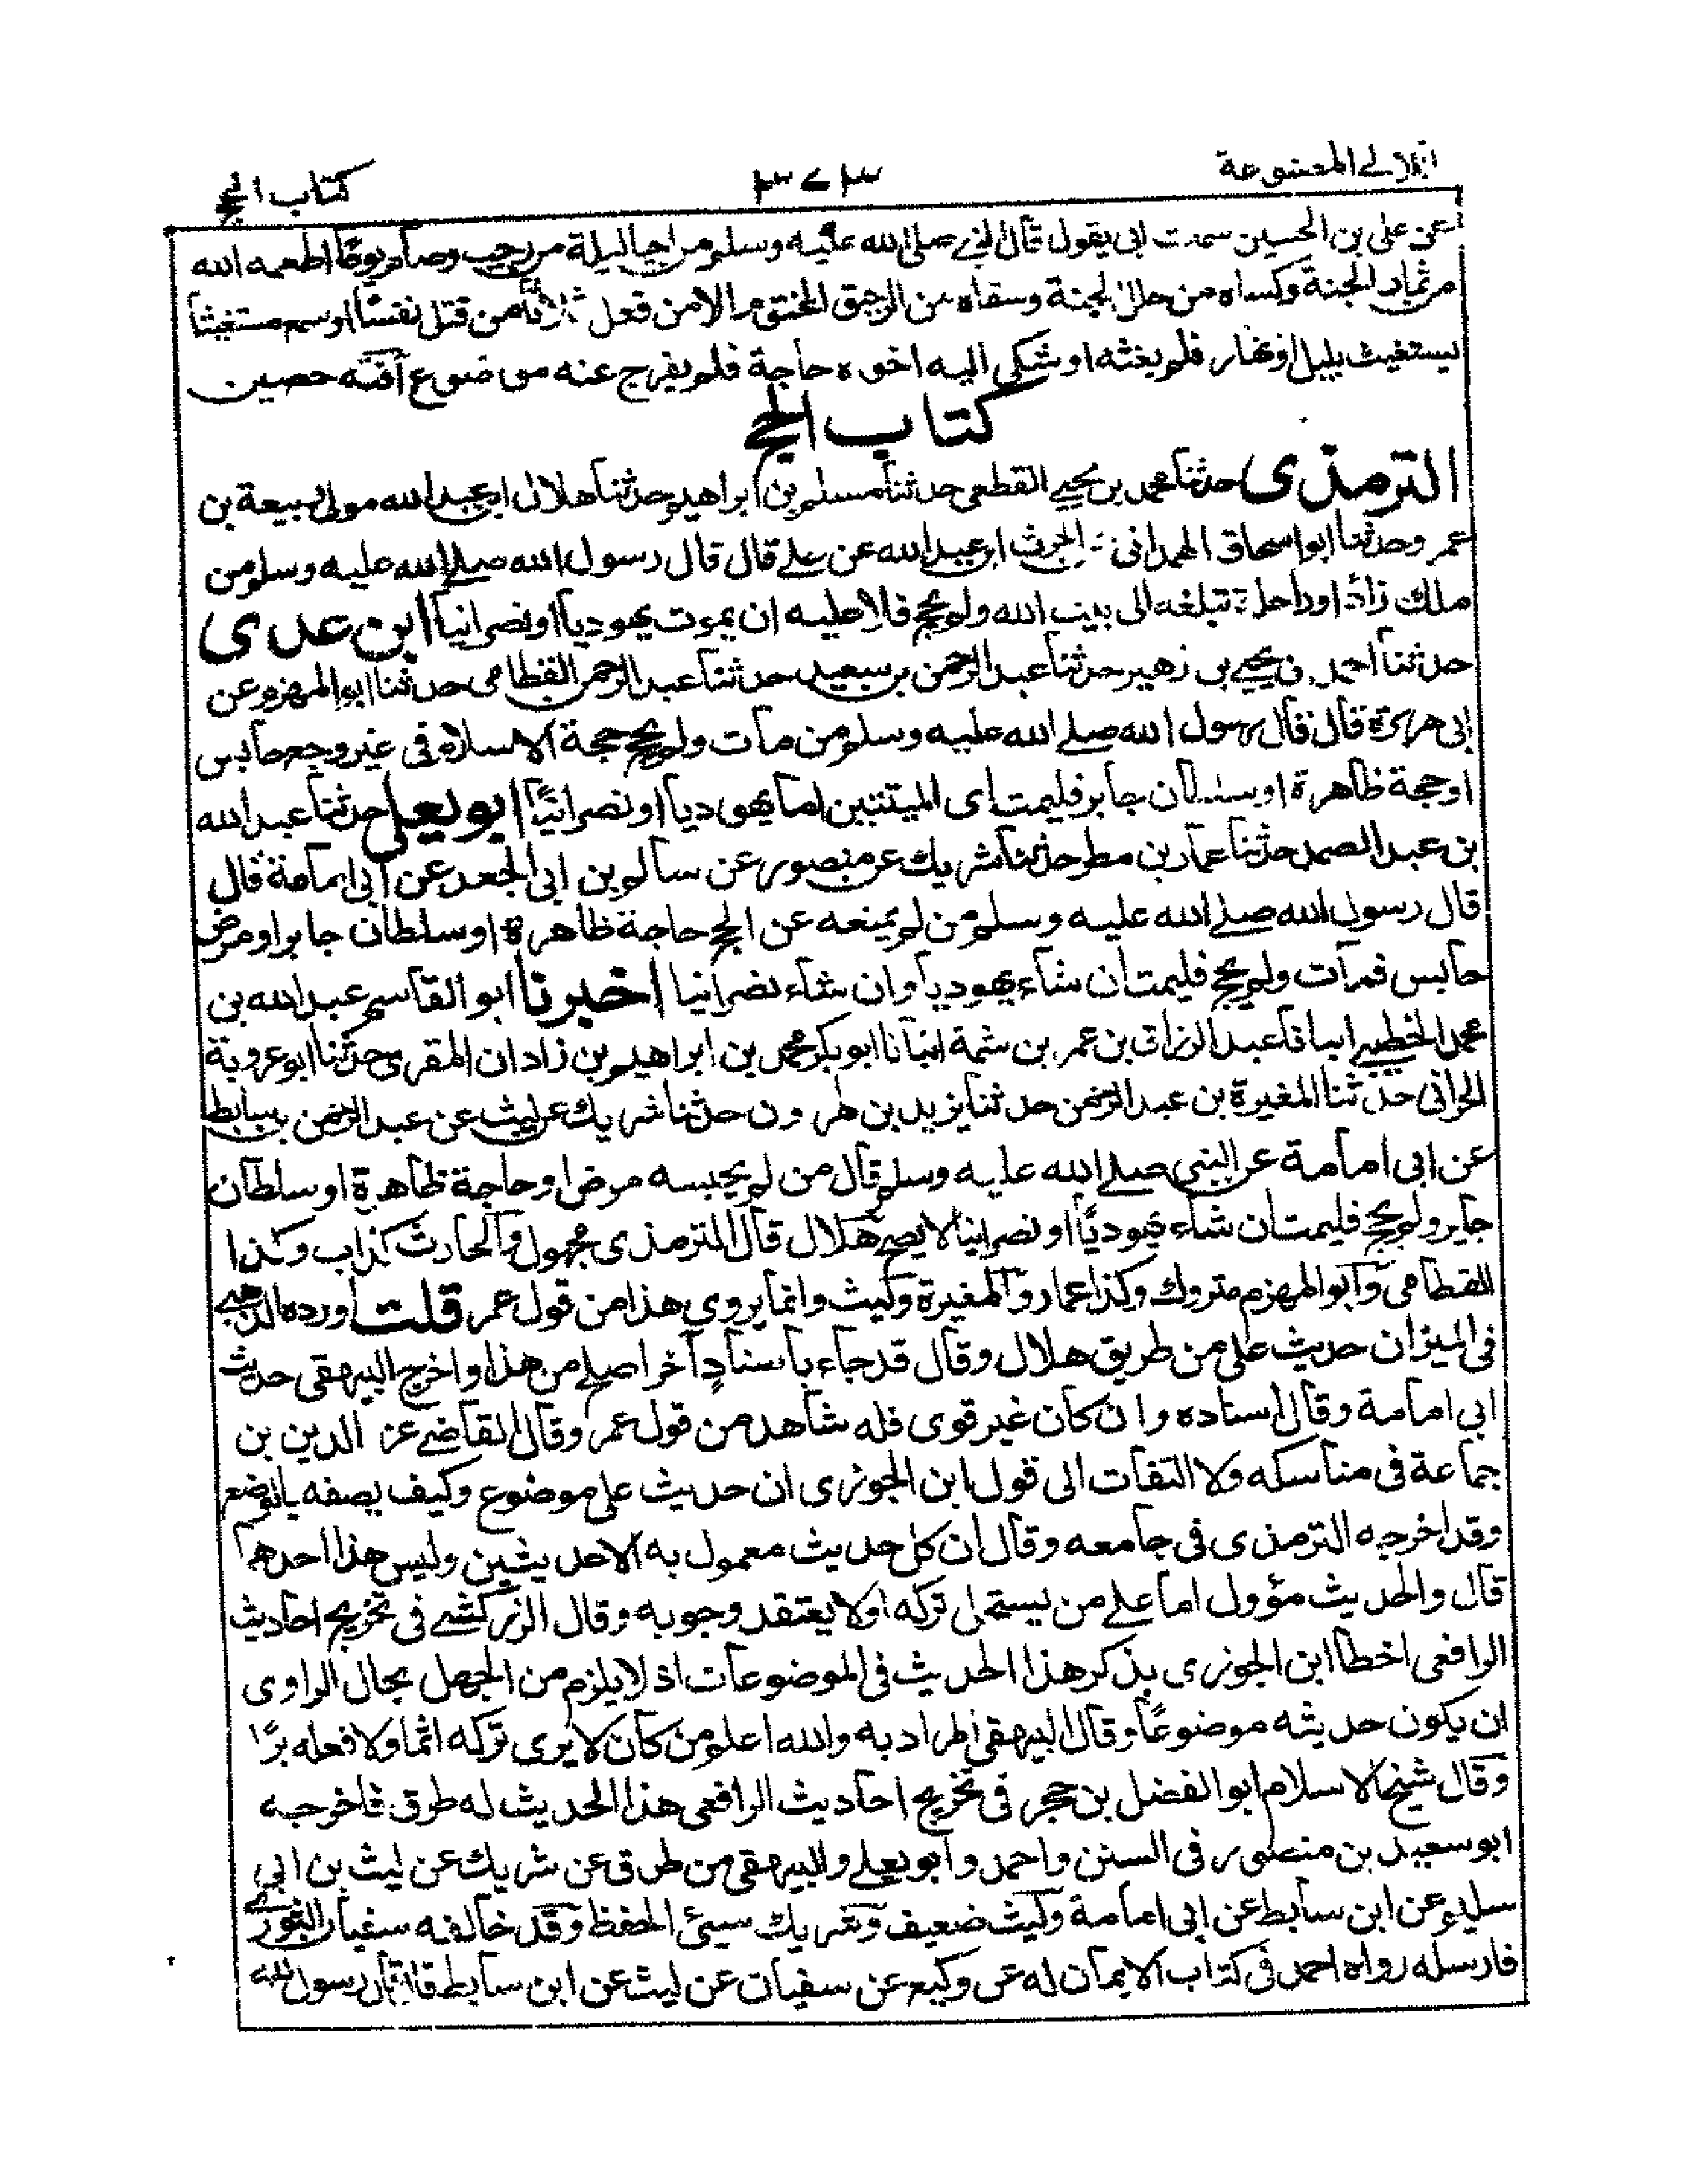 اللآلى المصنوعة ٣٧٣ كتاب الحج
عن على بن الحسين سمعت ابى يقول قال النبي صلى الله عليه وسلم من احيا ليلة من رجب وصام يوما اطعمه الله
من ثمار الجنة وكساه من حلل الجنة وسقاه من الرحيق المختوم الا من فعل ثلاثا من قتل نفسا او سمع مستغيثا
يستغيث بليل او نهار فلم يغثه او شكى اليه اخوه حاجة فلم يفرج عنه موضوع آفته حصين
كتاب الحج
الترمذى حدثنا محمد بن يحيى القطعى حدثنا مسلم بن ابراهيم حدثنا هلال ابن عبد الله مولى ربيعة بن
عمر وحدثنا ابو اسحاق الهمدانى عن الحرث ابن عبد الله عن على قال قال رسول الله صلى الله عليه وسلم من
ملك زادا وراحلة تبلغه الى بيت الله ولم يحج فلا عليه ان يموت يهوديا او نصرانيا ابن عدى
حدثنا احمد بن يحيى بن زهير حدثنا عبد الرحمن بن سعيد حدثنا عبد الرحمن القطامى حدثنا ابو المهزم عن
ابى هريرة قال قال رسول الله صلى الله عليه وسلم من مات ولم يحج حجة الاسلام فى غير وجع حابس
او حجة ظاهرة او سلطان جابر فليمت اى الميتتين اما يهوديا او نصرانيا ابو يعلى حدثنا عبد الله
بن عبد الصمد حدثنا عمار بن مطر حدثنا شريك عن منصور عن سالم بن ابى الجعد عن ابى امامة قال
قال رسول الله صلى الله عليه وسلم من لم يمنعه عن الحج حاجة ظاهرة او سلطان جابر او مرض
حابس فمات ولم يحج فليمت ان شاء يهوديا وان شاء نصرانيا اخبرنا ابو القاسم عبد الله بن
محمد الخطيب انبانا عبد الرزاق بن عمر بن شمة انبانا ابو بكر محمد بن ابراهيم بن زادان المقرى حدثنا ابو عروبة
الحرانى حدثنا المغيرة بن عبد الرحمن حدثنا يزيد بن هرون حدثنا شريك عن ليث عن عبد الرحمن بن سابط
عن ابى امامة عن النبى صلى الله عليه وسلم قال من لم يحبسه مرض او حاجة ظاهرة او سلطان
جاير ولم يحج فليمت ان شاء يهوديا او نصرانيا لا يصح هلال قال الترمذى مجهول والحارث كذاب وكذا
القطامى وابو المهزم متروك وكذا عمار والمغيرة وليث وانما يروى هذا من قول عمر قلت اورده الذهبى
فى الميزان حديث على من طريق هلال وقال قد جاء باسناد آخر اصلح من هذا واخرج البيهقى حديث
ابى امامة وقال اسناده وان كان غير قوى فله شاهد من قول عمر وقال القاضى عز الدين بن
جماعة فى مناسكه ولا التفات الى قول ابن الجوزى ان حديث على موضوع وكيف يصفه بالوضع
وقد اخرجه الترمذى فى جامعه وقال ان كل حديث معمول به الا حديثين وليس هذا احدهما
قال والحديث مؤول اما على من يستحل تركه او لا يعتقد وجوبه وقال الزركشى فى تخريج احاديث
الرافعى اخطا ابن الجوزى بذكر هذا الحديث فى الموضوعات اذ لا يلزم من الجهل بحال الراوى
ان يكون حديثه موضوعا وقال البيهقى المراد به والله اعلم من كان لا يرى تركه اثما ولا فعله برًا
وقال شيخ الاسلام ابو الفضل بن حجر فى تخريج احاديث الرافعى هذا الحديث له طرق فاخرجه
ابو سعيد بن منصور فى السنن واحمد وابو يعلى والبيهقى من طرق عن شريك عن ليث بن ابى
سليم عن ابن سابط عن ابى امامة وليث ضعيف وشريك سيئ الحفظ وقد خالفه سفيان الثورى
فارسله رواه احمد فى كتاب الايمان له عن وكيع عن سفيان عن ليث عن ابن سابط قال قال رسول الله